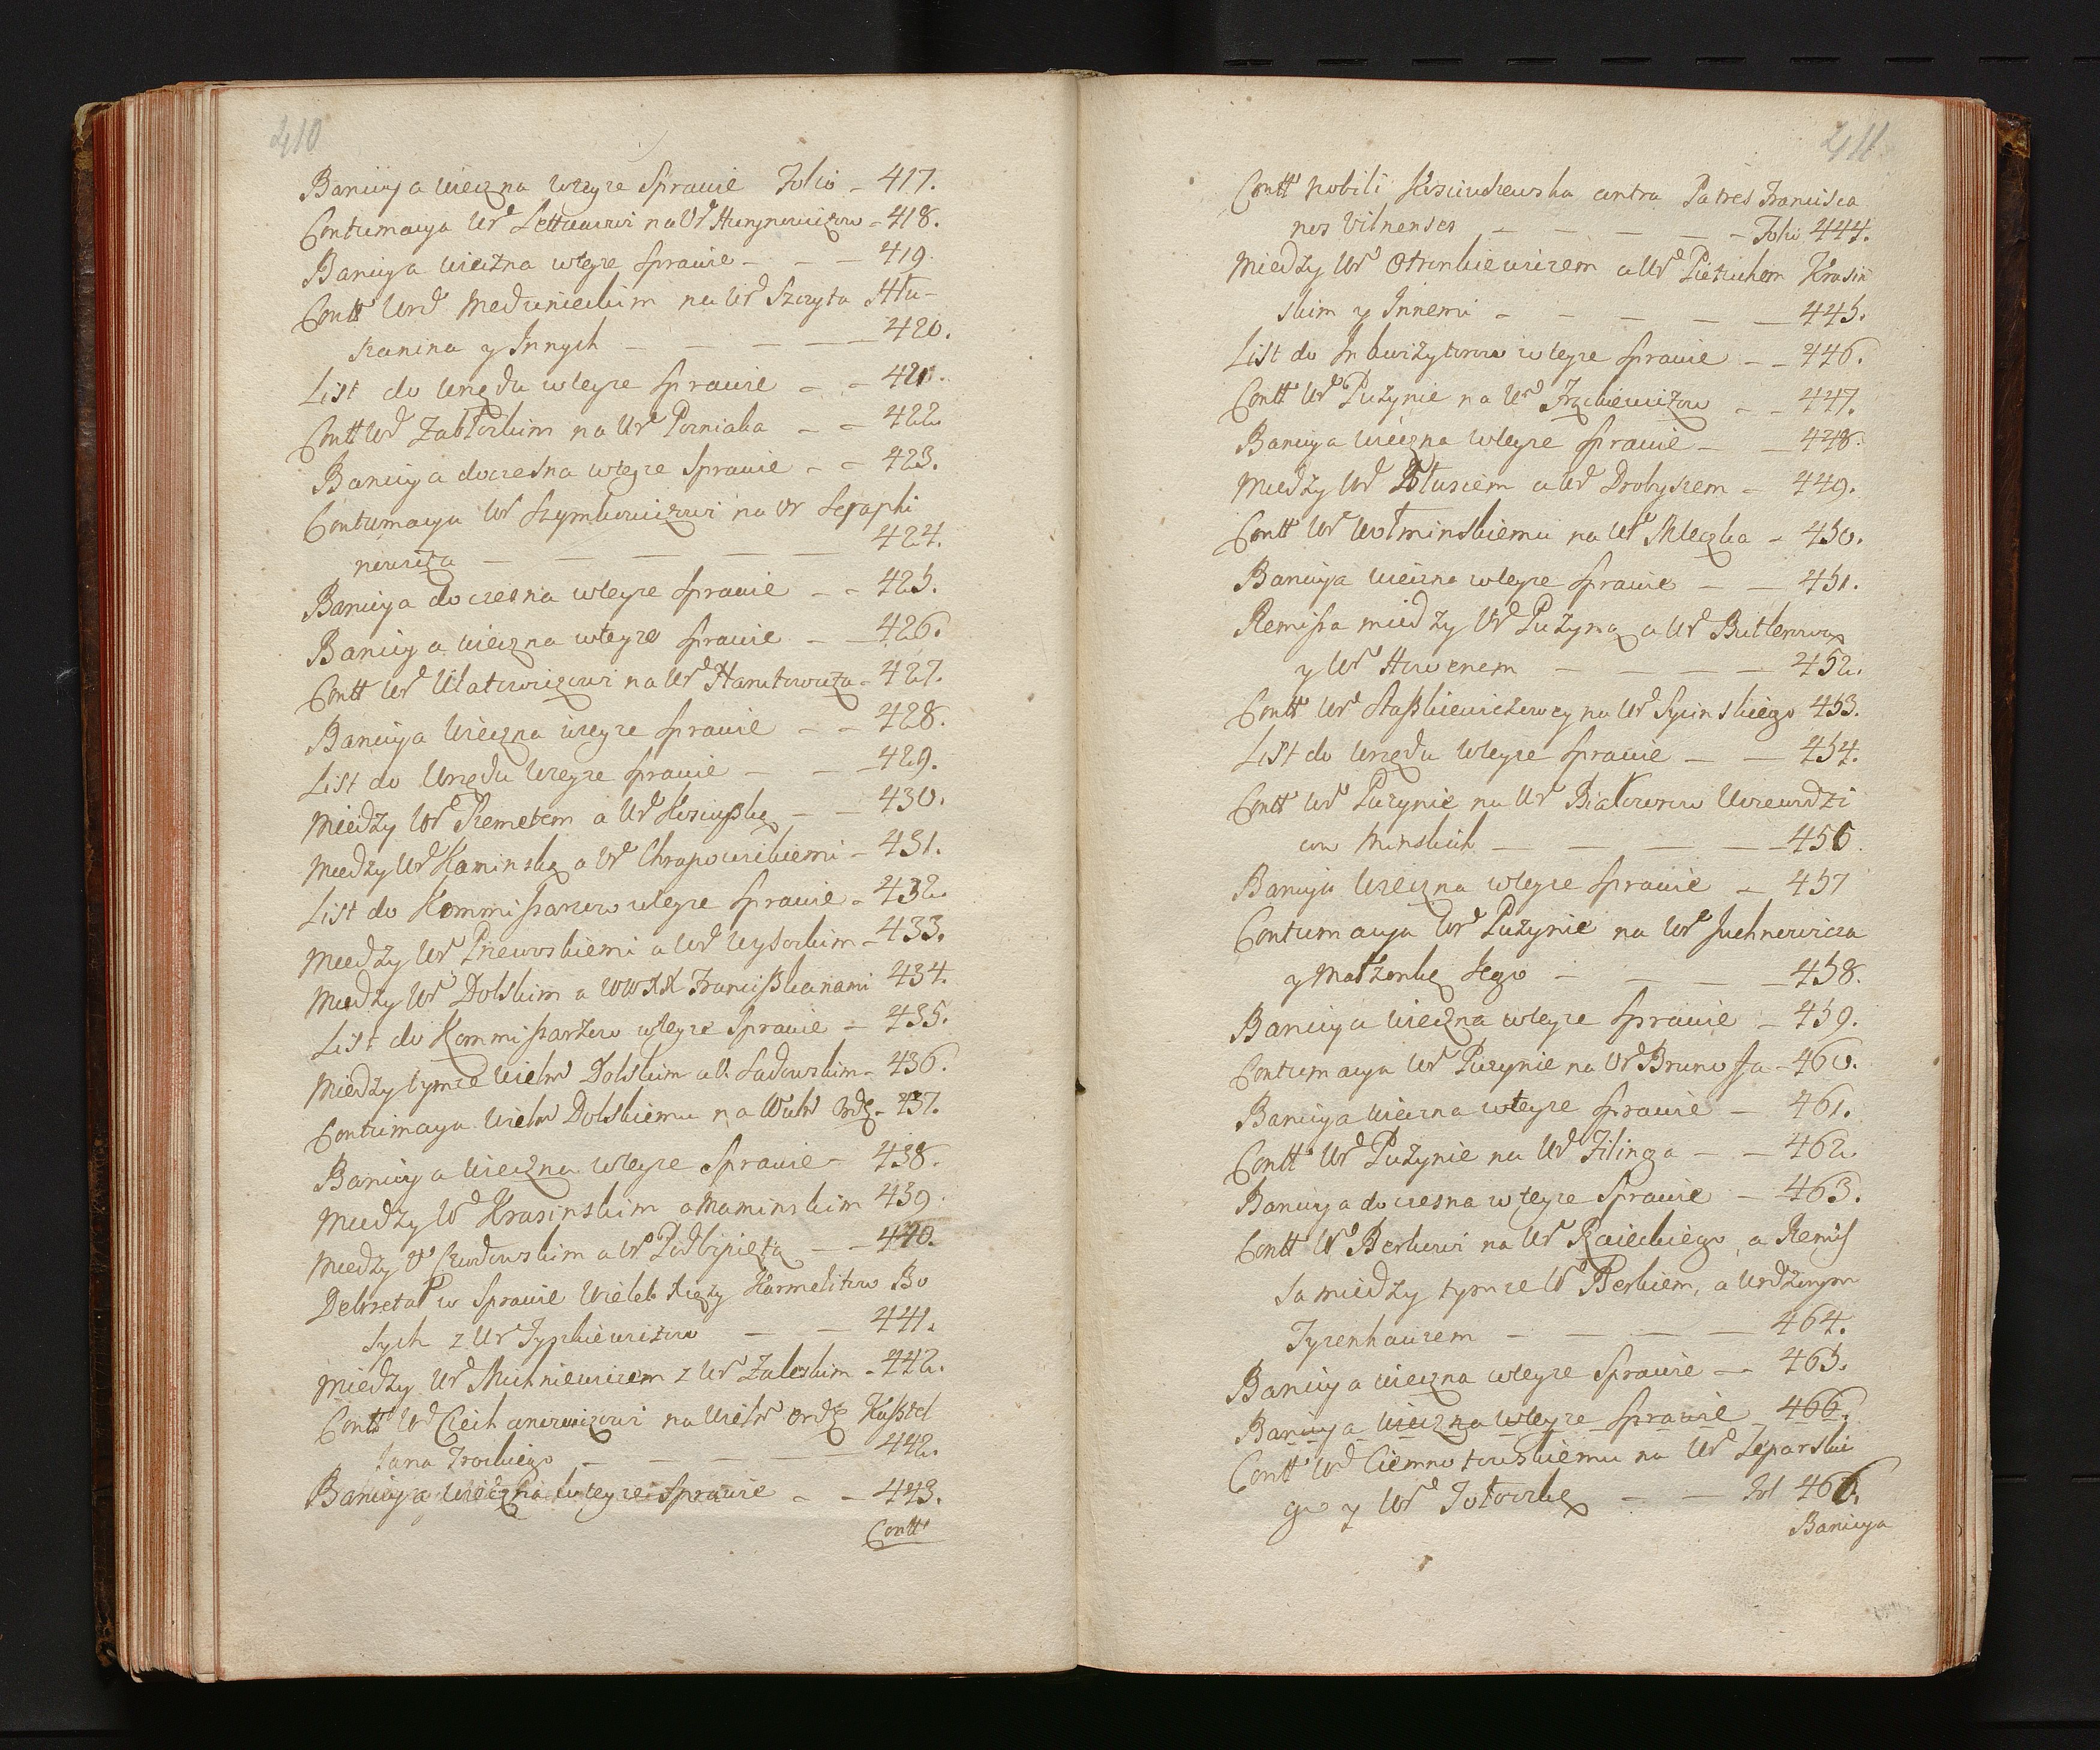 410
Banicya wieczna wteyze Sprawie Folio - 417.
Contumacya Ur. Lettuwowi na Ur. - 418.
Banicya wieczna wteyze Sprawie - - - 419.
Contt Urd. Meduniechim na Urd Szczyta Hlu-
szanina y Innych - - - - 420.
List do Urzędu wteyze Sprawie - - 421.
Contt Urd Zabłockim na Ur Porniaka - - 422
Banicya doczesna wteyze Sprawie - - 423.
Contumacya Ur Szymkowiczowi na Ur Seraphi
nowicza - - - - - 424.
Banicya doczesna wteyze Sprawie - - 425.
Banicya wieczna wteyze Sprawie - - 426.
Contt Urd Ulatowiczowi na Urd Hanutowicza - 427.
Banicya Wieczna wteyze Sprawie - - 428.
List do Urzędu wteyze Sprawie - - - 429.
Miedzy Ur Remetem a Ur Kosiuszką - - 430.
Miedzy Ur Kaminską a Ur Chrapowickiemi - 431.
List do Kommissarzow wteyze Sprawie - 432.
Miedzy Ur Przewoskiemi a Urd Wysockim - 433.
Miedzy Ur Dolskim a WWXX Franciszkanami 434.
List do Kommissarzow wteyze Sprawie - 435.
Miedzy tymze Wielm Dolskim a U. Sadowskim - 436.
Contumacya Wielm Dolskiemu na Wielm Ordg. - 437.
Banicya wieczna wteyze Sprawie - 438.
Miedzy Ur Krasinskim a Maminskim 439.
Miedzy Ur Czudowskim a Ur Podbipiętą - - 440.
Dekreta w Sprawie Wieleb Xięży Karmelitow Bo
sych z Ur Tyszkiewiczow - - 441.
Miedzy Ur Michniewiczem z Ur Zaleskim - 442.
Contt Urd Ciechanowiczowi na Wielm Ordg Kasztel
lana Trockiego - - - - 442.
Banicya wieczna wteyze Sprawie - - 443.
Contt
411.
Contt Nobili Kosciuszewska contra Patres Francisca
nos Vilnenses - - - - - Folio 444.
Miedzy Ur Otronkiewiczem a Ur Pietuchem Krasin
skim y Innemi - - - - - 445.
List do Inkwizytorow wteyze Sprawie - - 446.
Contt Urd Puzynie na Urd Frąckiewiczow - - 447.
Banicya wieczna wteyze Sprawie - - 448.
Miedzy Urd Tolusiem a Urd Drobyszem - 449.
Contt Ur Wołminskiemu na Ur Kleczka - 450.
Banicya wieczna wteyze Sprawie - - 451.
Remissa miedzy Urd Puzyną a Ur Butlerową
y Ur Howenem - - - - 452.
Contt Urd Staszkiewiczowey na Urd Sycinskiego 453.
List do Urzędu wteyze Sprawie - - 454.
Contt Urd Puzynie na Ur Białozorow Woiewodzi
cow Minskich - - - - - 456.
Banicya Wieczna wteyze Sprawie - 457
Contumacya Urd Puzynie na Ur Juchnowicza
y Małżonkę Jego - - - - 458.
Banicya wieczna wteyze Sprawie - 459.
Contumacya Ur Puzynie na Urd Brunossa - 460.
Banicya wieczna wteyze Sprawie - 461.
Contt Urd Puzynie na Urd Zilinga - - 462
Banicya doczesna wteyze Sprawie - 463.
Contt Ur Berkowi na Ur Raieckiego a Remis
sa miedzy tymze Ur Berkiem, a Urdzonym
Tyzenhauzem - - - - 464.
Banicya wieczna wteyze Sprawie - 465.
Banicya wieczna wteyze Sprawie 466.
Contt Urd Ciemnołowskiemu na Urd Zeparski
go y Urd Jotowskę - - Fol 466.
Banicya